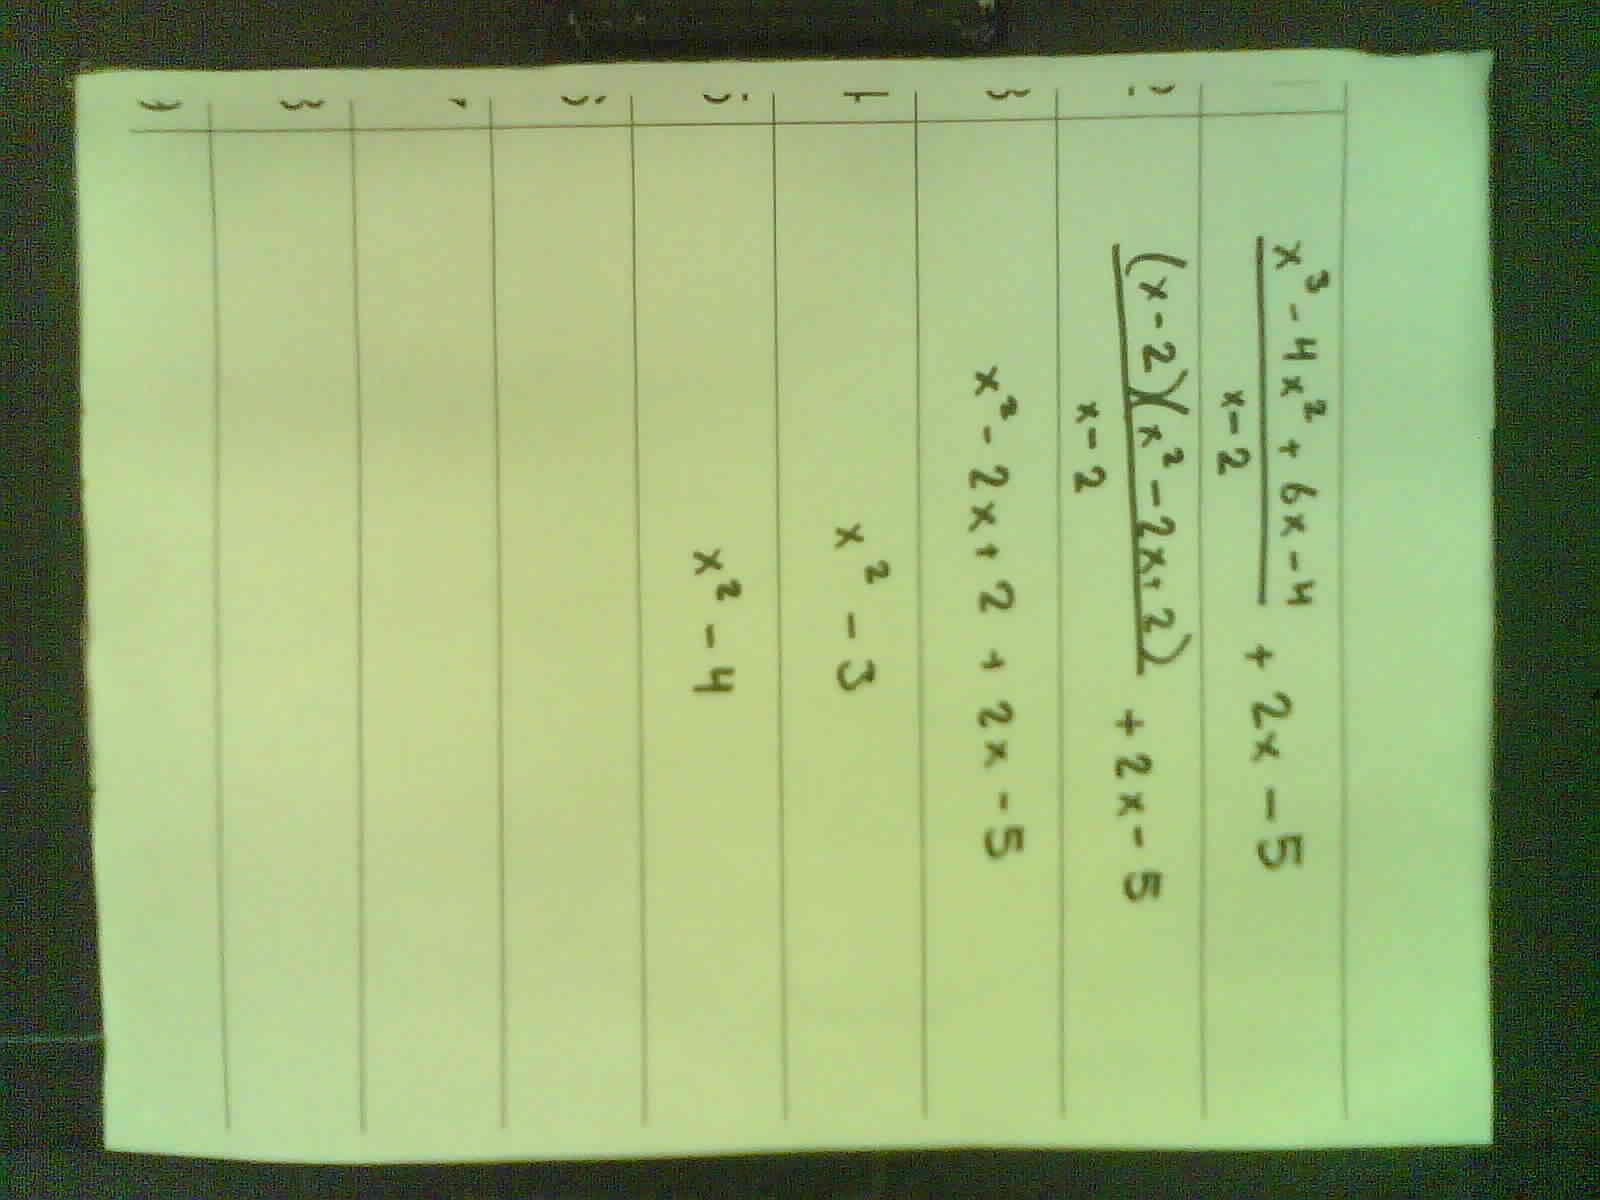 1 x³ - 4x² + 6x - 4 / x - 2 + 2x - 5
2 (x - 2)(x² - 2x + 2) / x - 2 + 2x - 5
3 x² - 2x + 2 + 2x - 5
4 x² - 3
5 x² - 4
6
7
8
9